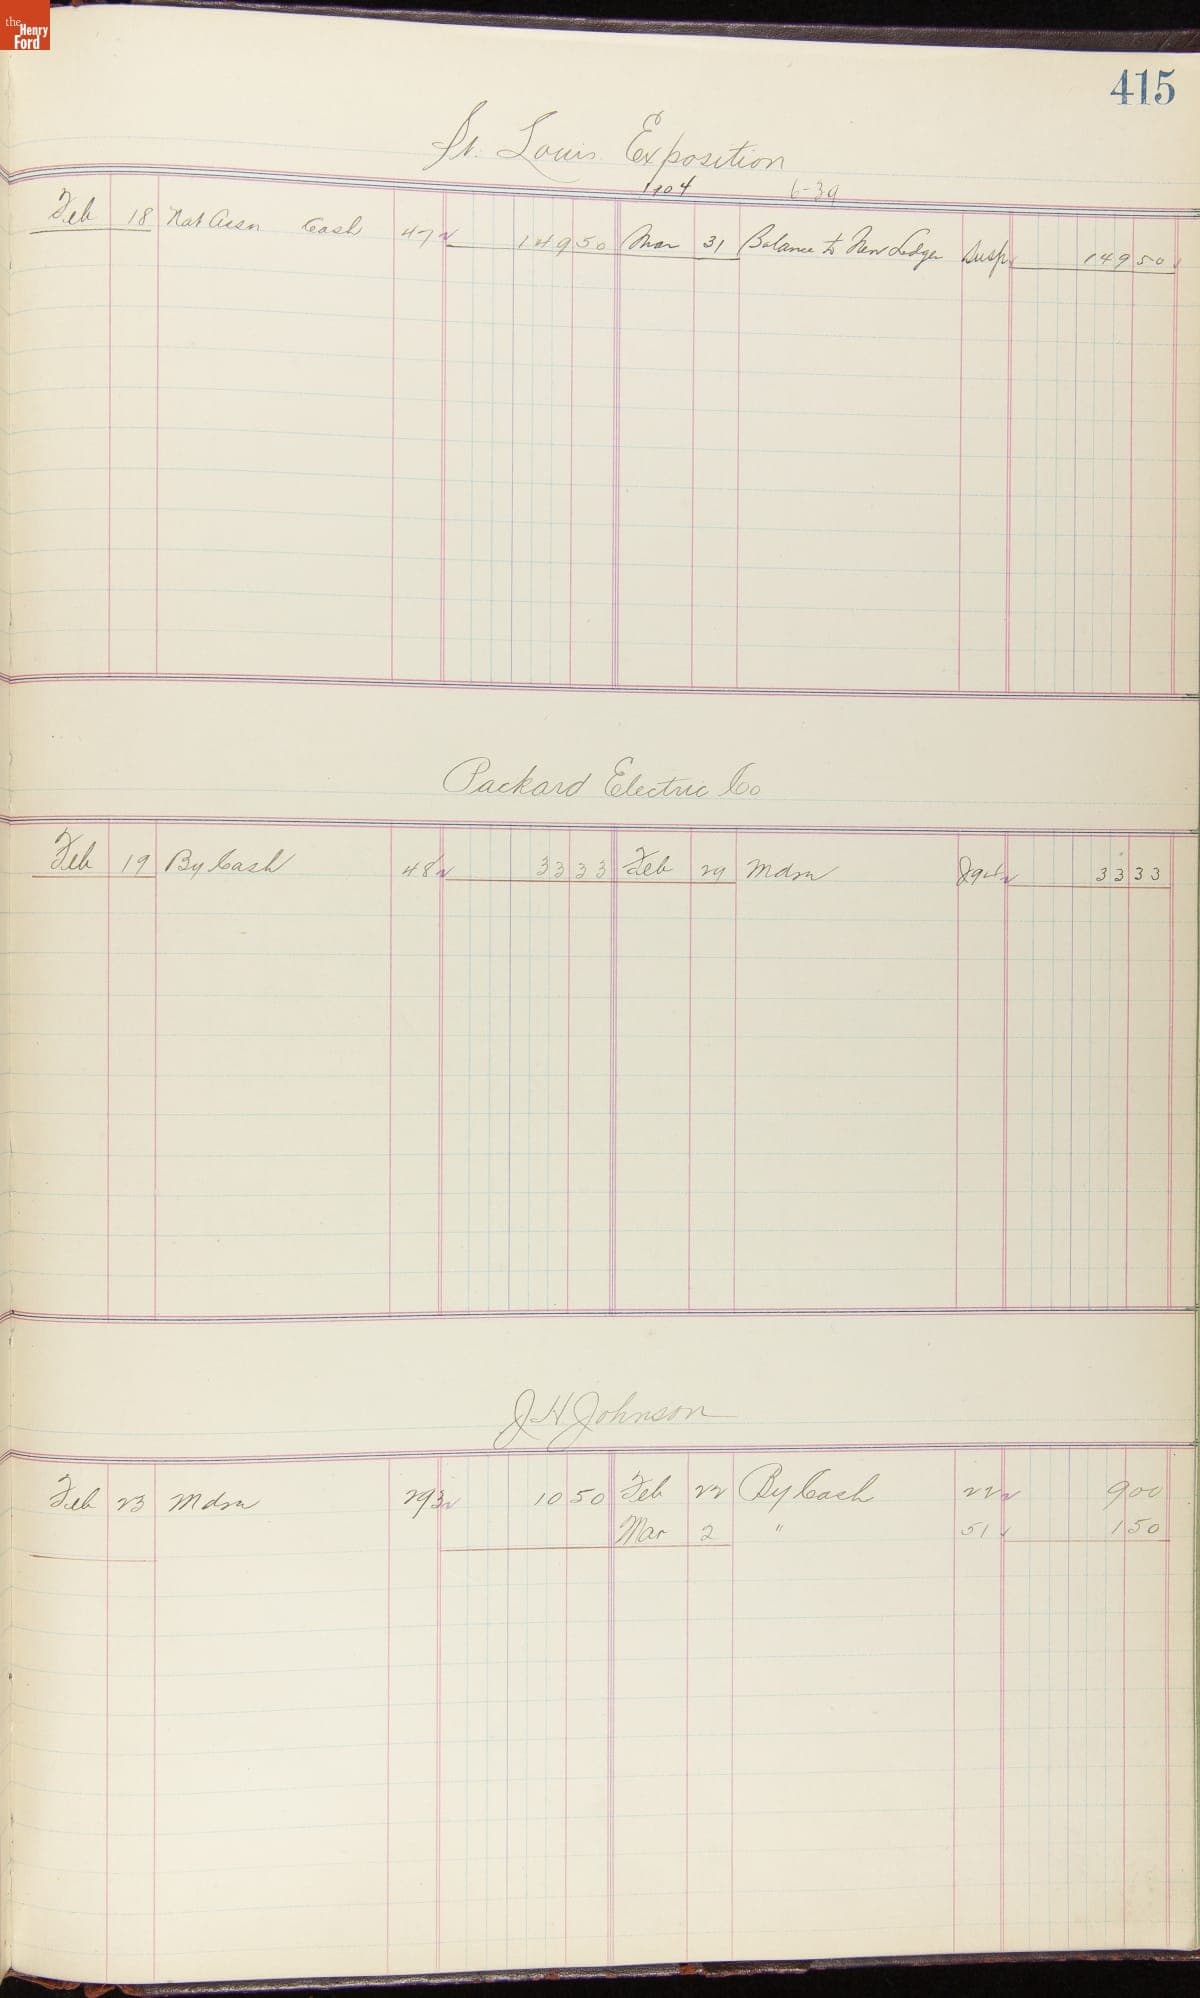 the
Henry
Ford
415
St. Louis Exposition
1904 6-39
Feb 18 Nat Assn Cash 47 149 50 Mar 31 Balance to New Ledger Susp 149 50
Packard Electric Co
Feb 19 By Cash 48 33 33 Feb 29 Mdse 33 33
J H Johnson
Feb 23 Mdse 293 10 50 Feb 22 By Cash 22 9 00
Mar 2 " 51 1 50